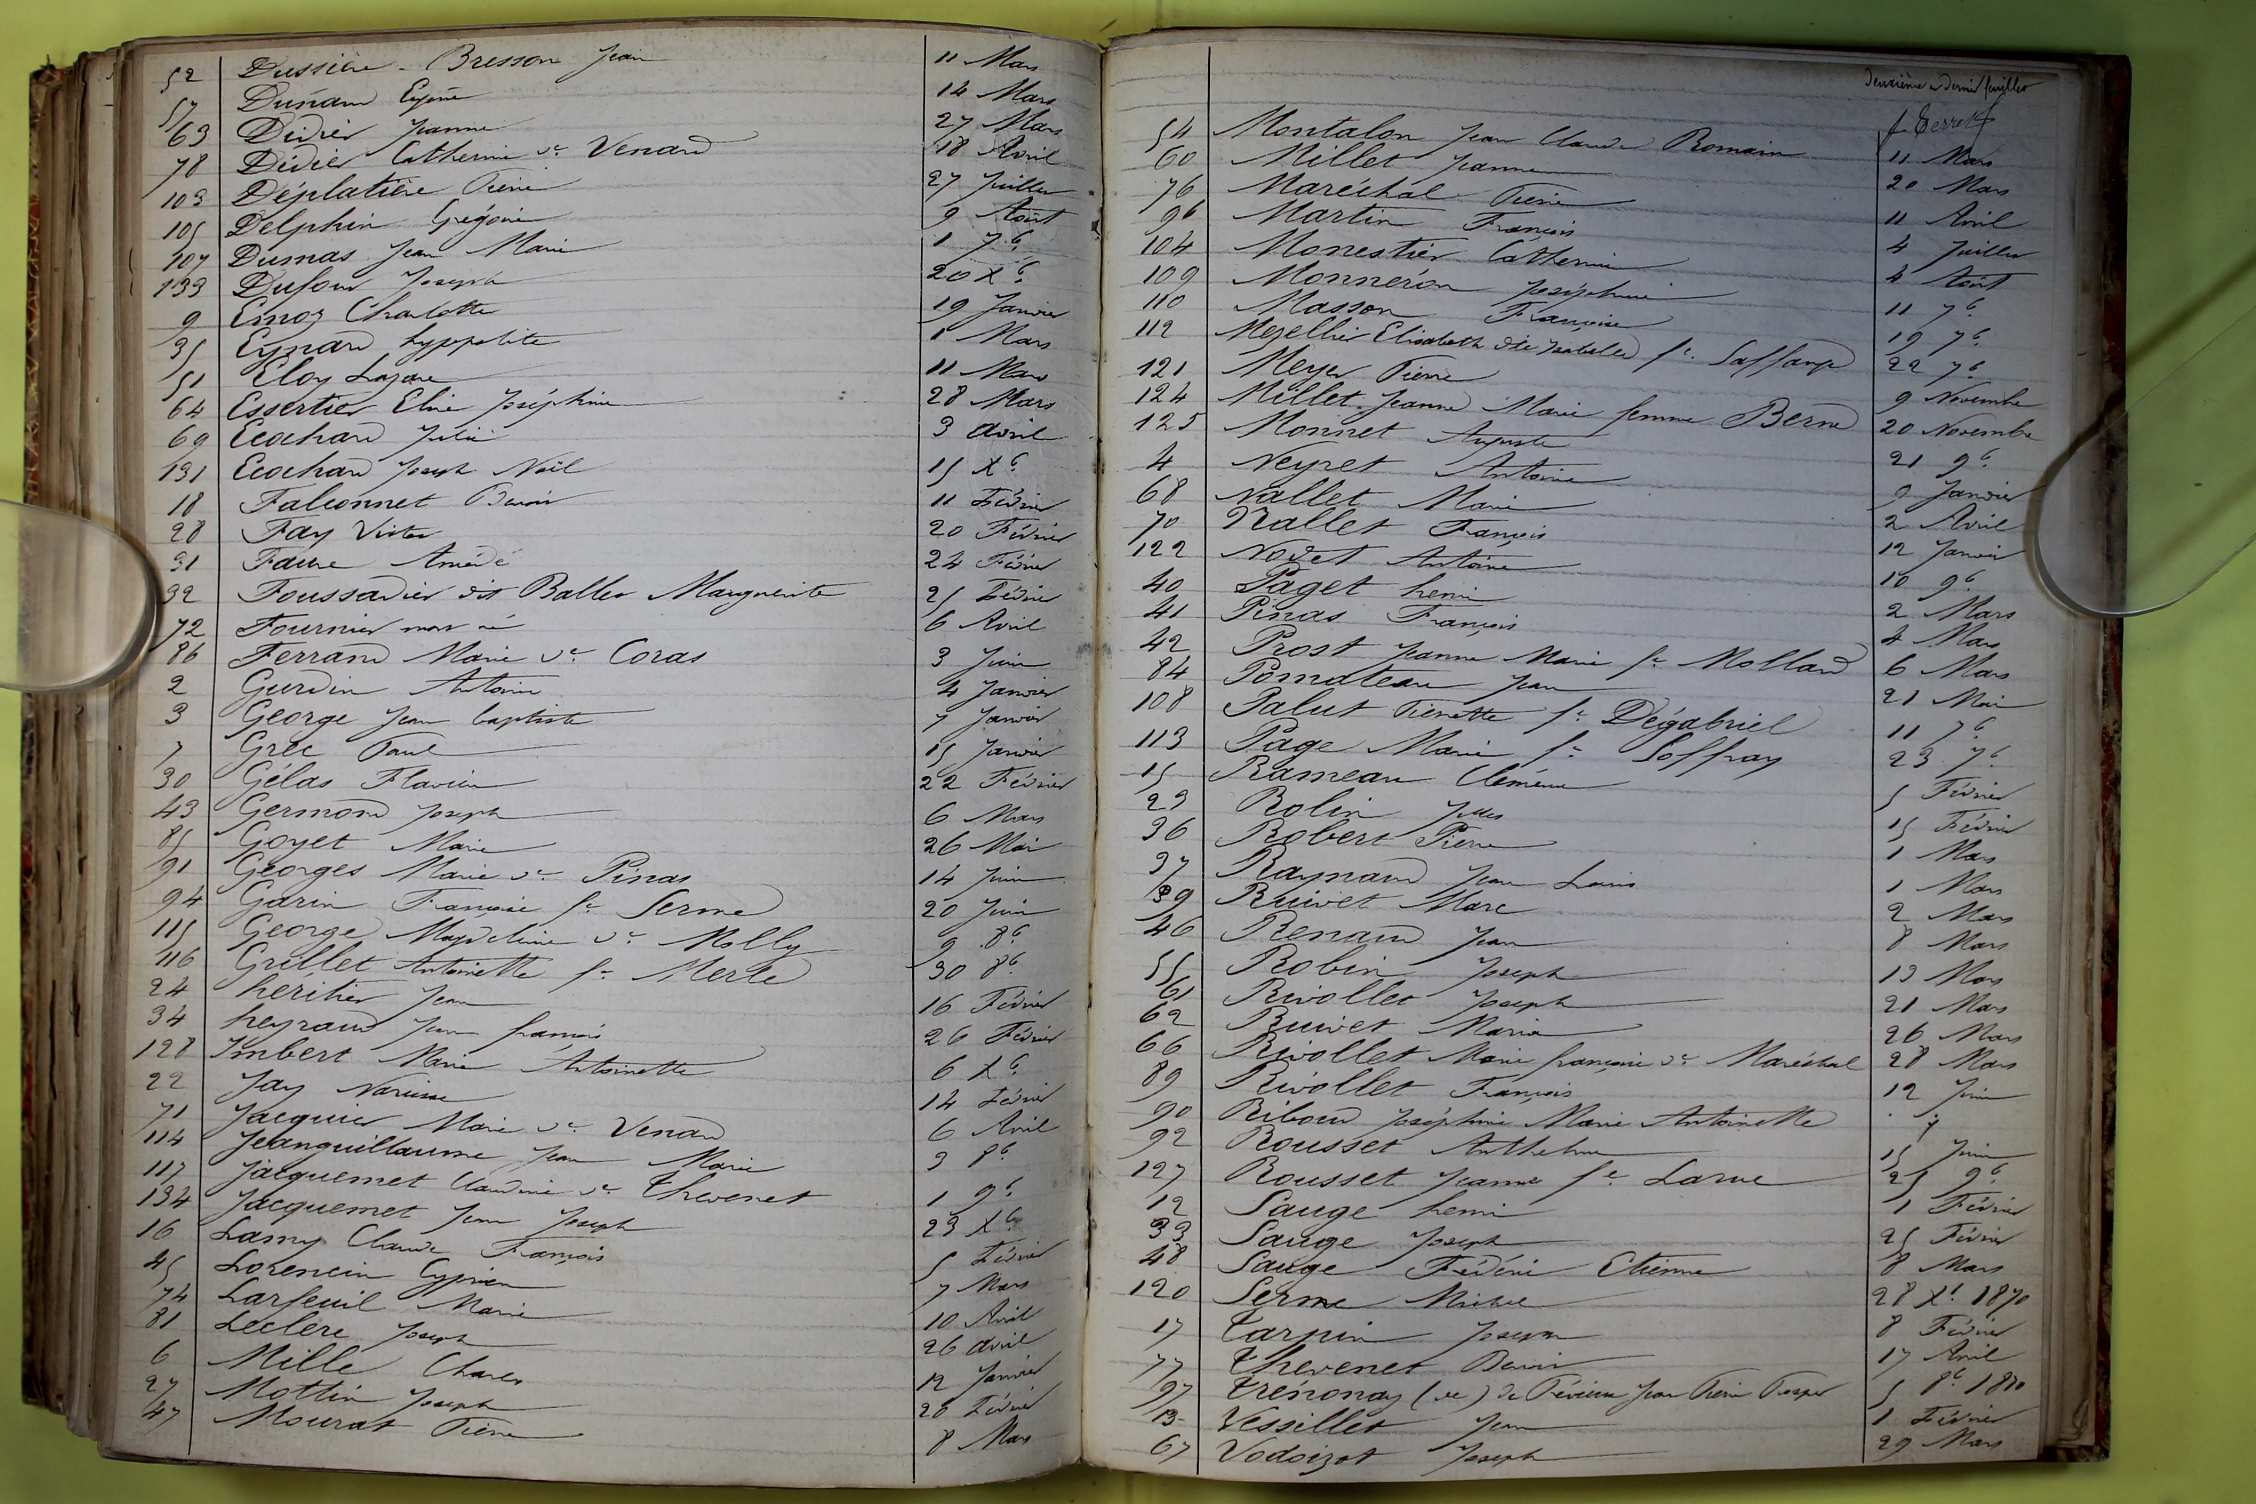 52 Dussière - Bresson Jean 11 Mars
57 Dunand Eugène 14 Mars
63 Didier Jeanne 27 Mars
78 Didier Catherine ve Venard 18 Avril
103 Déplatière Pierre 27 Juillet
105 Delphin Grégoire 9 Août
107 Dumas Jean Marie 1 7b
133 Dufour Joseph 20 Xb
9 Charlotte 19 Janvier
35 Eynard hyppolite 1 Mars
51 Eloy Lazare 11 Mars
64 Essertier Elie Joséphine 28 Mars
69 Ecochard Julie 3 avril
131 Ecochard Joseph Noël 15 Xb
18 Falconnet Benoit 11 Février
28 Fay Victor 20 Février
31 Faure Amédé 24 Février
32 Foussadier dit Ballev Marguerite 25 Février
72 Fournier mort né 6 Avril
86 Ferrand Marie ve Coras 3 Juin
2 Gurdin Antoine 4 Janvier
3 George Jean baptiste 7 Janvier
7 Grec Paul 15 Janvier
30 Gélas Flavien 22 Février
43 Germond Joseph 6 Mars
85 Goyet Marie 26 Mai
91 Georges Marie ve Pinas 14 Juin
94 Garin Françoise fe Serme 20 Juin
115 George Magdeleine ve Molly 9 8b
116 Grillet Antoinette fe Merle 30 8b
24 heritier Jean 16 Février
34 heyraud Jean françois 26 Février
128 Imbert Marie Antoinette 6 Xb
22 Jay Narcisse 14 Février
71 Jacquier Marie ve Venard 6 Avril
114 Jeanguillaume Jean Marie 3 8b
117 Jacquemet Claudine ve Thevenet 1 9b
134 Jacquemet Jean Joseph 23 Xb
16 Lamy Claude François 5 Février
45 Lorencin Cyprien 7 Mars
74 Larfeuil Marie 10 Avril
81 Leclere Joseph 26 avril
6 Mille Charles 12 Janvier
27 Mottin Joseph 20 Février
47 Mourat Pierre 8 Mars
deuxième et dernier feuillet
54 Montalon Jean Claude Romain 11 Mars
60 Millet Jeanne 20 Mars
76 Maréchal Pierre 11 Avril
96 Martin François 4 Juillet
104 Monestier Catherine 4 Août
109 Monneron Joséphine 11 7b
110 Masson Françoise 19 7b
112 Mezellier Elisabeth dite Isabeled fe 22 7b
121 Meyer Pierre 9 Novembre
124 Millet Jeanne Marie femme Berne 20 Novembre
125 Monnet Auguste 21 9b
4 Neyret Antoine 9 Janvier
68 Nallet Marie 2 Avril
70 Nallet François 12 Janvier
122 Nodet Antoine 10 9b
40 Paget henri 2 Mars
41 Pinas François 4 Mars
42 Prost Jeanne Marie fe Mollard 6 Mars
84 Pomateau Jean 21 Mai
108 Palut Pierrette fe Dégabriel 11 7b
113 Page Marie fe Soffray 23 7b
15 Rameau Clémence 5 Février
23 Rolin Jules 15 Février
36 Robert Pierre 1 Mars
37 Raynaud Jean Louis 1 Mars
39 Ruivet Marc 2 Mars
46 Renaud Jean 8 Mars
55 Robin Joseph 13 Mars
61 Rivollet Joseph 21 Mars
62 Ruivet Maria 26 Mars
66 Rivollet Marie françoise ve Maréchal 28 Mars
89 Rivollet François 12 Juin
90 Riboud Joséphine Marie Antoinette
92 Rousset Anthelme 15 Juin
127 Rousset Jeanne fe Larue 25 9b
12 Sauge henri 1 Février
33 Sauge Joseph 25 Février
48 Sauge Frédéric Etienne 8 Mars
120 Serme Michel 28 Xb 1870
17 Tarpin Joseph 8 Février
77 Thevenet Benoit 17 Avril
97 Trénonay (de) de Jean Pierre Prosper 5 8b 1870
13 Vessillet Jean 1 Février
67 Vodoizot Joseph 29 Mars